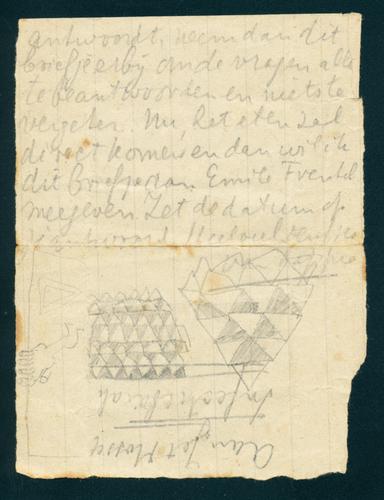 antwoordt, neem dan dit
briefje erbij om de vragen alle
te beantwoorden en niets te
vergeten. Nu, het eten zal
direct komen en dan wil ik
dit briefje aan Emile Frenkel
meegeven. Zet de datum op
je antwoord. Veel
Aan Jet Mossel